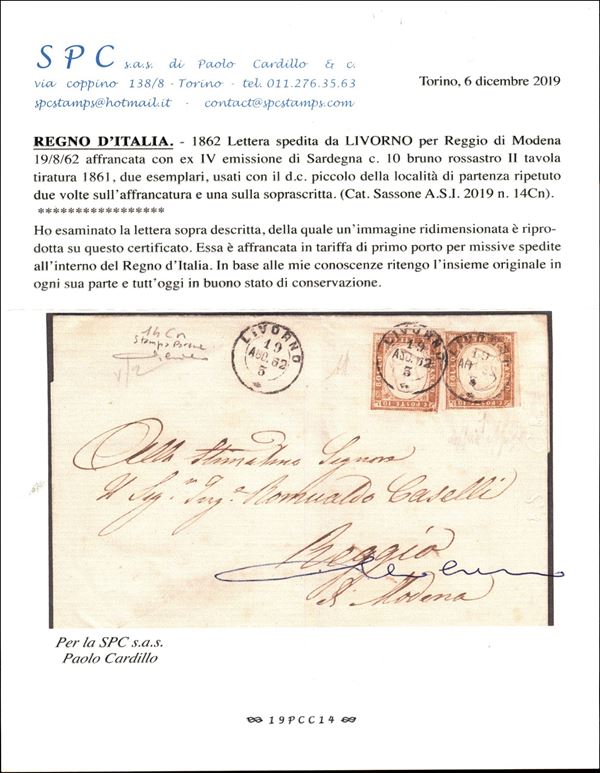 SPC s.a.s. di Paolo Cardillo & c.
via coppino 138/8 - Torino - tel. 011.276.35.63
spcstamps@hotmail.it - contact@spcstamps.com
Torino, 6 dicembre 2019
REGNO D'ITALIA. - 1862 Lettera spedita da LIVORNO per Reggio di Modena
19/8/62 affrancata con ex IV emissione di Sardegna c. 10 bruno rossastro II tavola
tiratura 1861, due esemplari, usati con il d.c. piccolo della località di partenza ripetuto
due volte sull'affrancatura e una sulla soprascritta. (Cat. Sassone A.S.I. 2019 n. 14Cn).
*****************
Ho esaminato la lettera sopra descritta, della quale un'immagine ridimensionata è ripro-
dotta su questo certificato. Essa è affrancata in tariffa di primo porto per missive spedite
all'interno del Regno d'Italia. In base alle mie conoscenze ritengo l'insieme originale in
ogni sua parte e tutt'oggi in buono stato di conservazione.
14 Cn
LIVORNO
19
AGO.62
5
LIVORNO
19
AGO.62
5
LIVORNO
19
5
Alla Stimatino Signore
Il Sig.n Ing.e Romualdo Caselli
Reggio
di Modena
Per la SPC s.a.s.
Paolo Cardillo
19PCC14